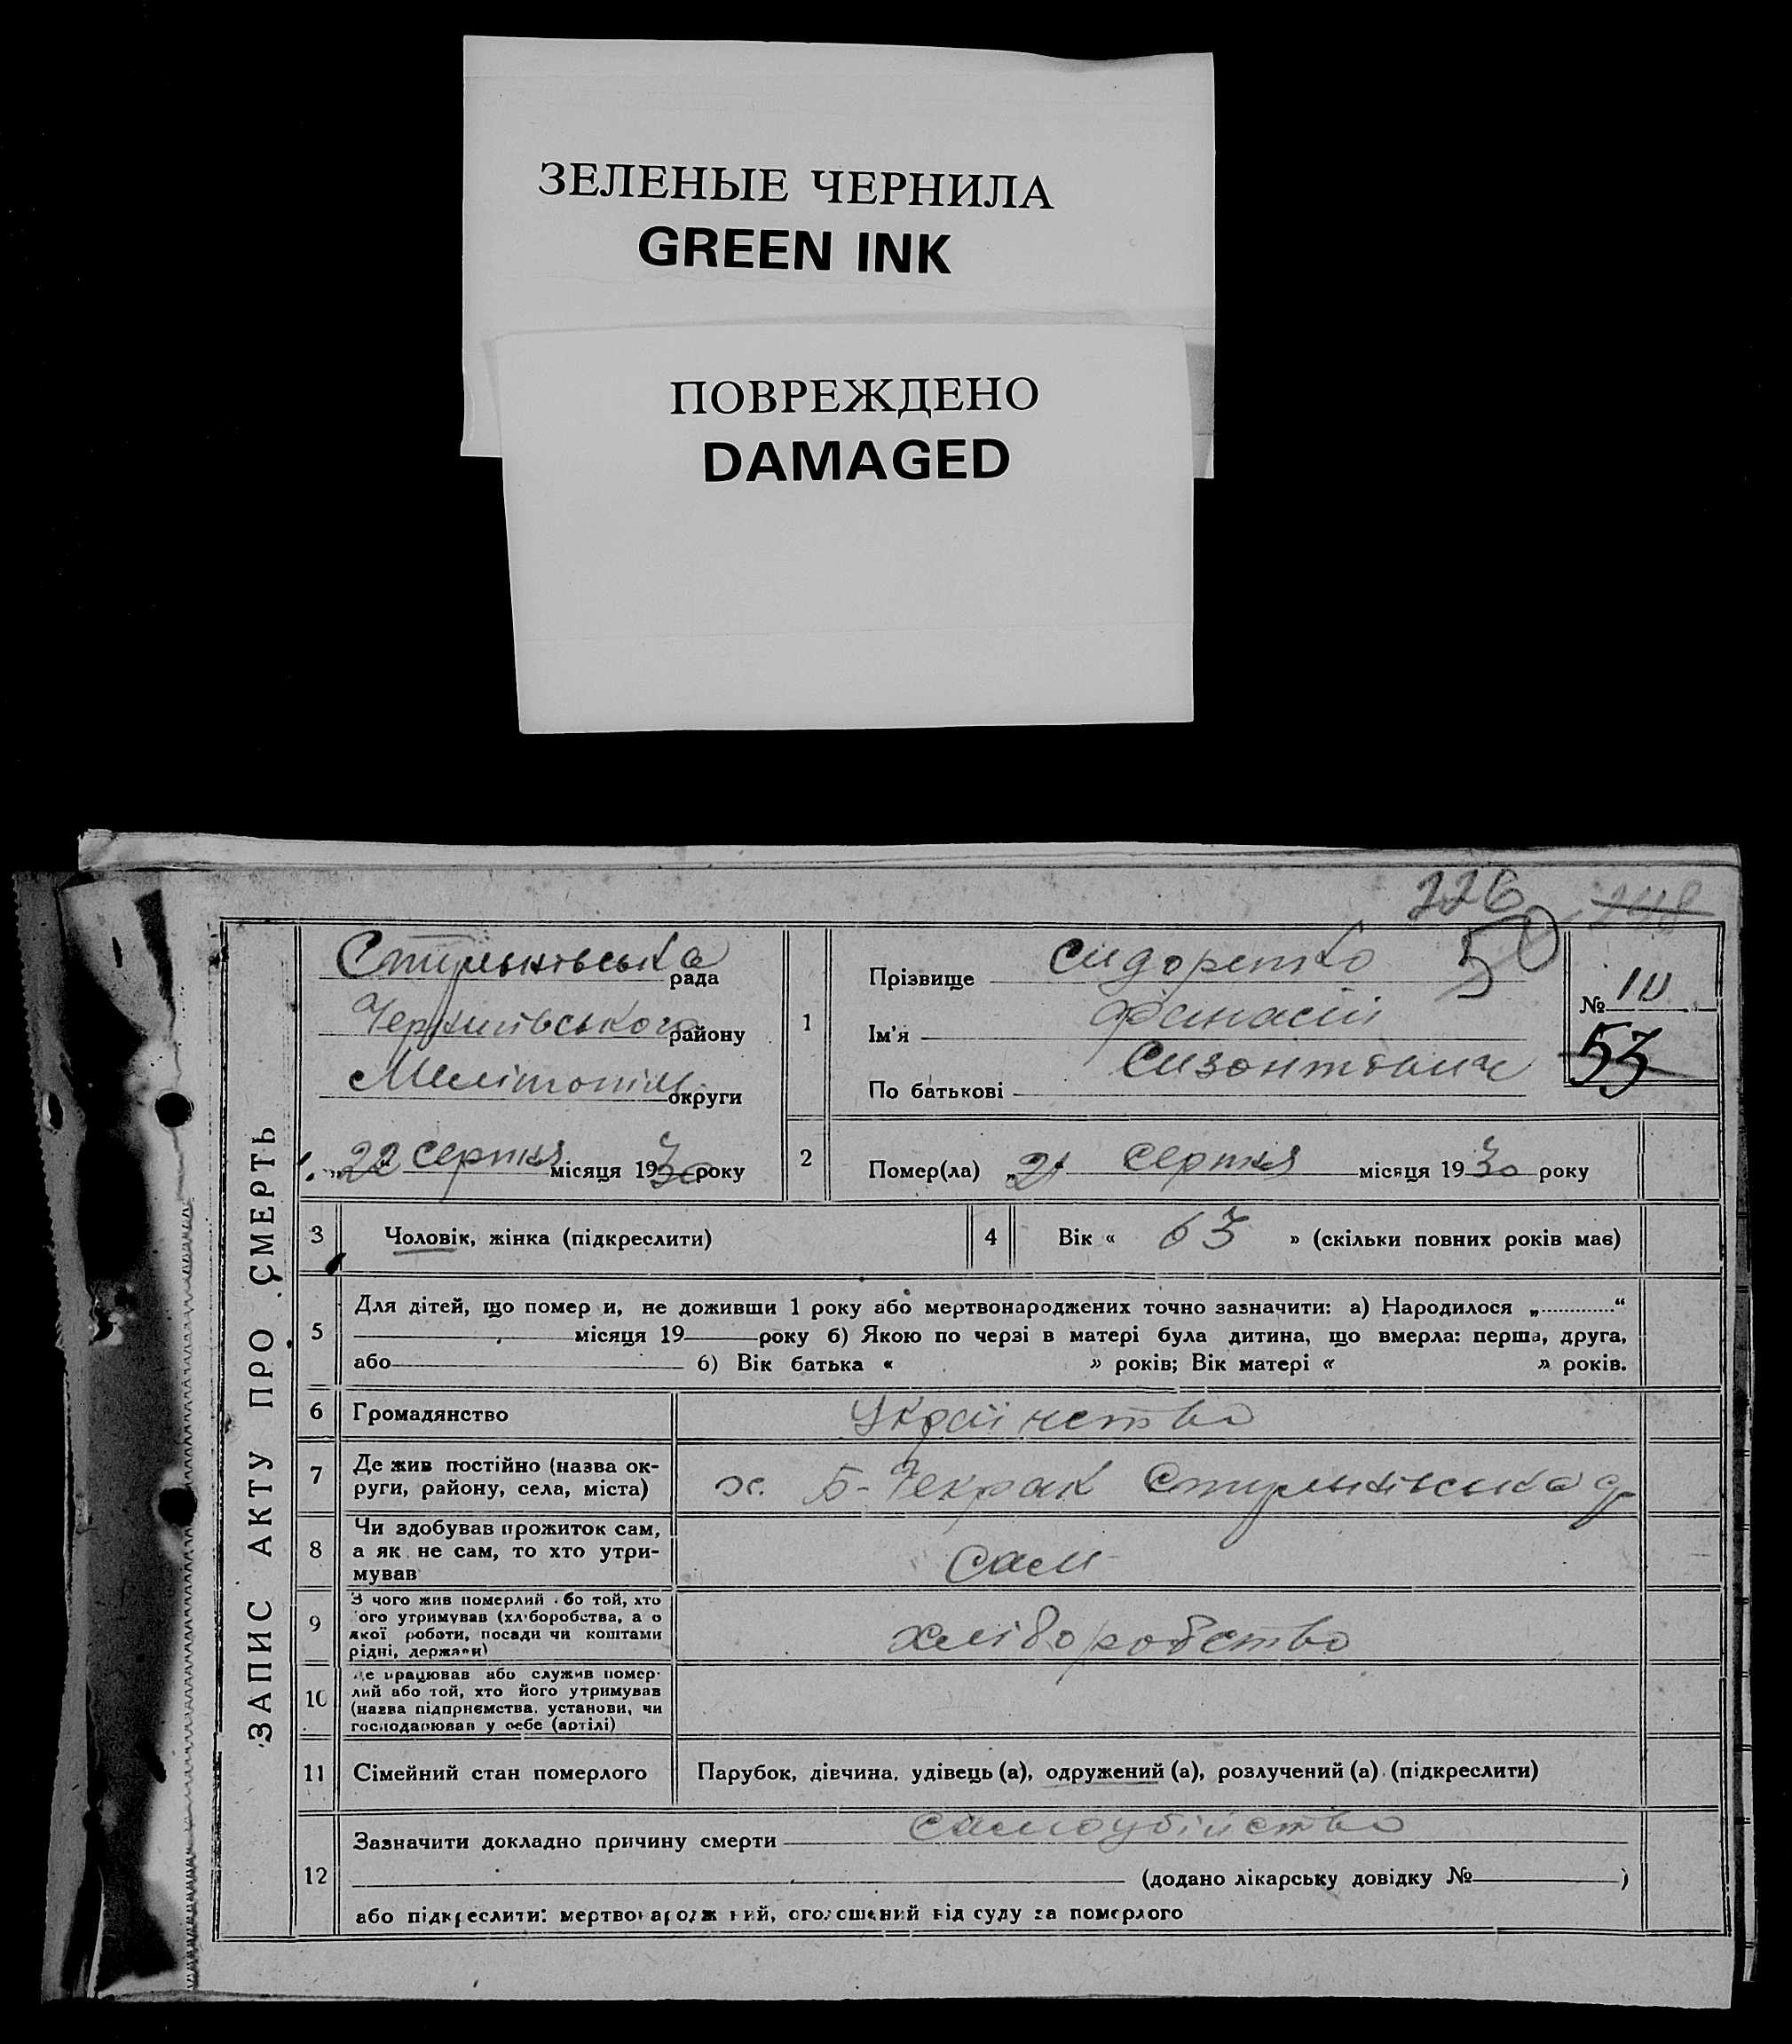 ЗЕЛЕНЫЕ ЧЕРНИЛА
GREEN INK
ПОВРЕЖДЕНО
DAMAGED
226
248
50
ЗАПИС АКТУ ПРО СМЕРТЬ
рада
Чернигівського району
Мелітопіль округи
22 серпня місяця 1930 року
1
Прізвище Сидоренко
Ім'я Афанасій
По батькові Сизонтович
№
53
2
Помер(ла) „21 серпня місяця 1930 року
3
Чоловік, жінка (підкреслити)
4
Вік « 63 » (скільки повних років має)
5
Для дітей, що помер и, не доживши 1 року або мертвонароджених точно зазначити: а) Народилося „ “
місяця 19 року б) Якою по черзі в матері була дитина, що вмерла: перша, друга,
або б) Вік батька « » років; Вік матері « » років.
6
Громадянство
Українство
7
Де жив постійно (назва ок-
руги, району, села, міста)
х. Б-Текрак
8
Чи здобував прожиток сам,
а як не сам, то хто утри-
мував
сам
9
З чого жив померлий бо той, хто
ого утримував (хліборобства, а о
якої роботи, посади чи коштами
рідні, держави)
хліборобство
10
де працював або служив помер-
лий або той, хто його утримував
(назва підприємства, установи, чи
господарював у себе (артілі)
11
Сімейний стан померлого
Парубок, дівчина, удівець (а), одружений (а), розлучений (а) (підкреслити)
12
Зазначити докладно причину смерти самоубійство
(додано лікарську довідку № )
або підкреслити: мертвонароджений, оголошений від суду за померлого